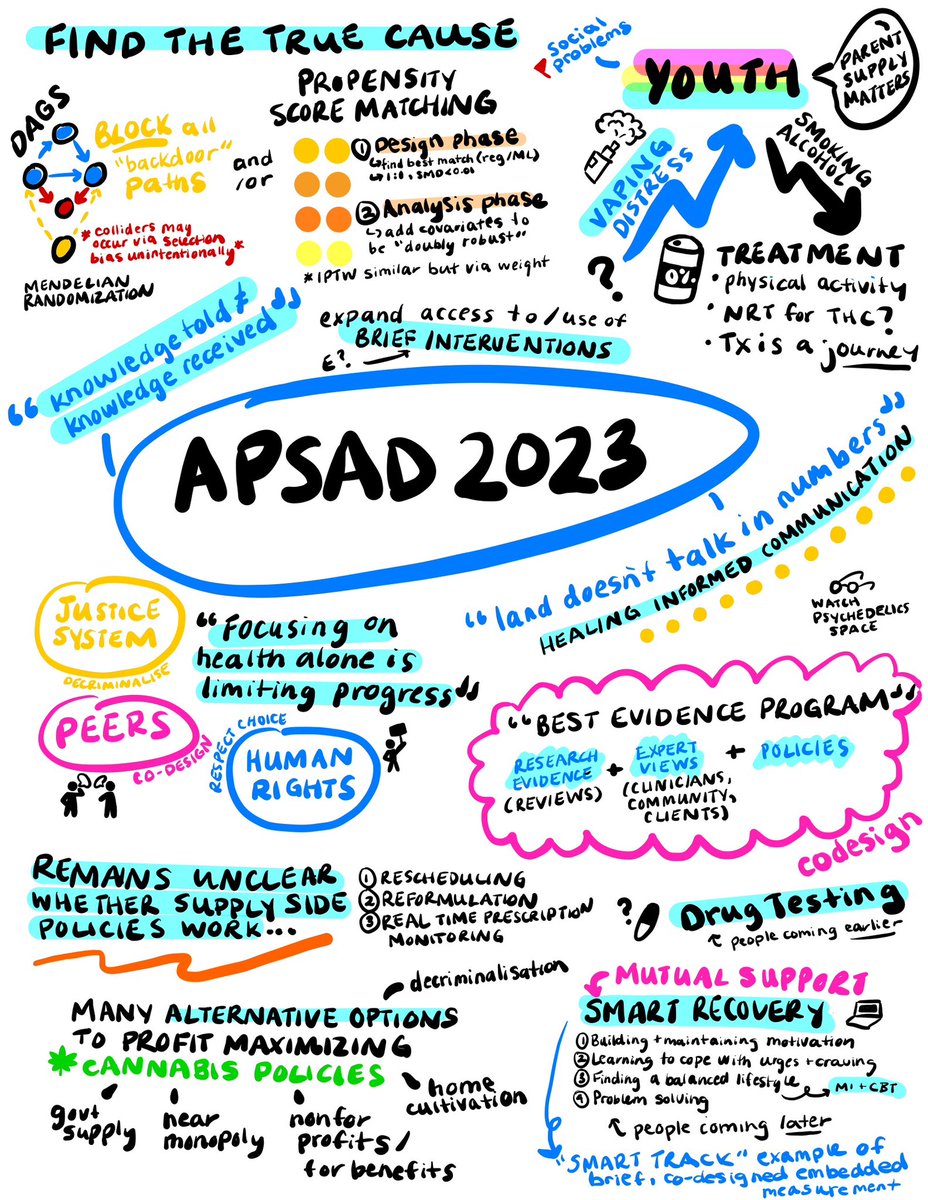 FIND THE TRUE CAUSE
DAGS
BLOCK all
"backdoor"
paths
*colliders may
occur via selection
bias unintentionally*
MENDELIAN
RANDOMIZATION
and
/or
PROPENSITY
SCORE MATCHING
① Design phase
↳ find best match (reg/ML)
↳ 1:1, SMD<0.01
② Analysis phase
↳ add covariates to
be "doubly robust"
*IPTW similar but via weight
social
problems
YOUTH
PARENT
SUPPLY
MATTERS
VAPING
DISTRESS
SMOKING
ALCOHOL
?
0%
TREATMENT
• physical activity
• NRT for THC?
• TX is a journey
"knowledge told ≠
knowledge received"
expand access to/use of
BRIEF INTERVENTIONS
E?
APSAD 2023
"land doesn't talk in numbers"
HEALING INFORMED COMMUNICATION
WATCH
PSYCHEDELICS
SPACE
JUSTICE
SYSTEM
DECRIMINALISE
"Focusing on
health alone is
limiting progress"
PEERS
CO-DESIGN
RESPECT CHOICE
HUMAN
RIGHTS
"BEST EVIDENCE PROGRAM"
RESEARCH
EVIDENCE
(REVIEWS)
+
EXPERT
VIEWS
(CLINICIANS,
COMMUNITY,
CLIENTS)
+
POLICIES
codesign
REMAINS UNCLEAR
WHETHER SUPPLY SIDE
POLICIES WORK...
① RESCHEDULING
② REFORMULATION
③ REAL TIME PRESCRIPTION
MONITORING
?
Drug Testing
people coming earlier
decriminalisation
MANY ALTERNATIVE OPTIONS
TO PROFIT MAXIMIZING
CANNABIS POLICIES
govt
supply
near
monopoly
non for
profits/
for benefits
home
cultivation
MUTUAL SUPPORT
SMART RECOVERY
① Building + maintaining motivation
② Learning to cope with urges + craving
③ Finding a balanced lifestyle
④ Problem solving
MI + CBT
people coming later
"SMART TRACK" example of
brief, co-designed embedded
measurement